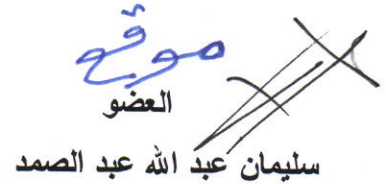 موقع
العضو
سليمان عبد الله عبد الصمد